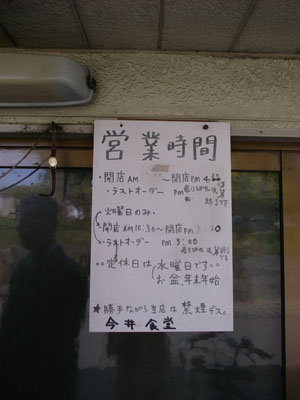 営業時間
・開店AM ～閉店PM 4
・ラストオーダー PM 終了です
火曜日のみ
開店AM10:30～閉店PM 10
・ラストオーダー PM 3:00
定休日は 水曜日です
お盆、年末年始
★勝手ながら当店は禁煙デス。
今井食堂